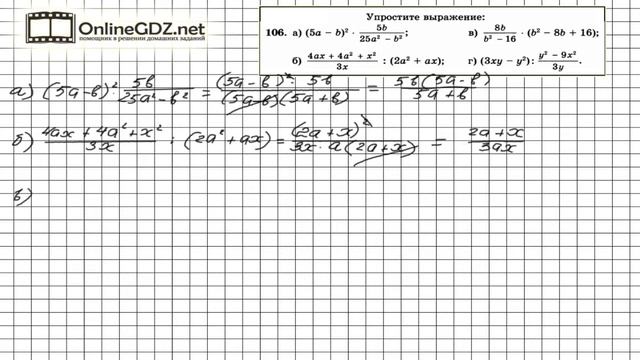 OnlineGDZ.net
помощник в решении домашних заданий
Упростите выражение:
106. а) (5a − b)² · 5b/(25a² − b²); в) 8b/(b² − 16) · (b² − 8b + 16);
б) (4ax + 4a² + x²)/3x : (2a² + ax); г) (3xy − y²) : (y² − 9x²)/3y.
а) (5a-b)² · 5b/(25a²-b²) = (5a-b)² · 5b/((5a-b)(5a+b)) = 5b(5a-b)/(5a+b)
б) (4ax+4a²+x²)/3x : (2a²+ax) = (2a+x)²/(3x·a(2a+x)) = (2a+x)/3ax
в)